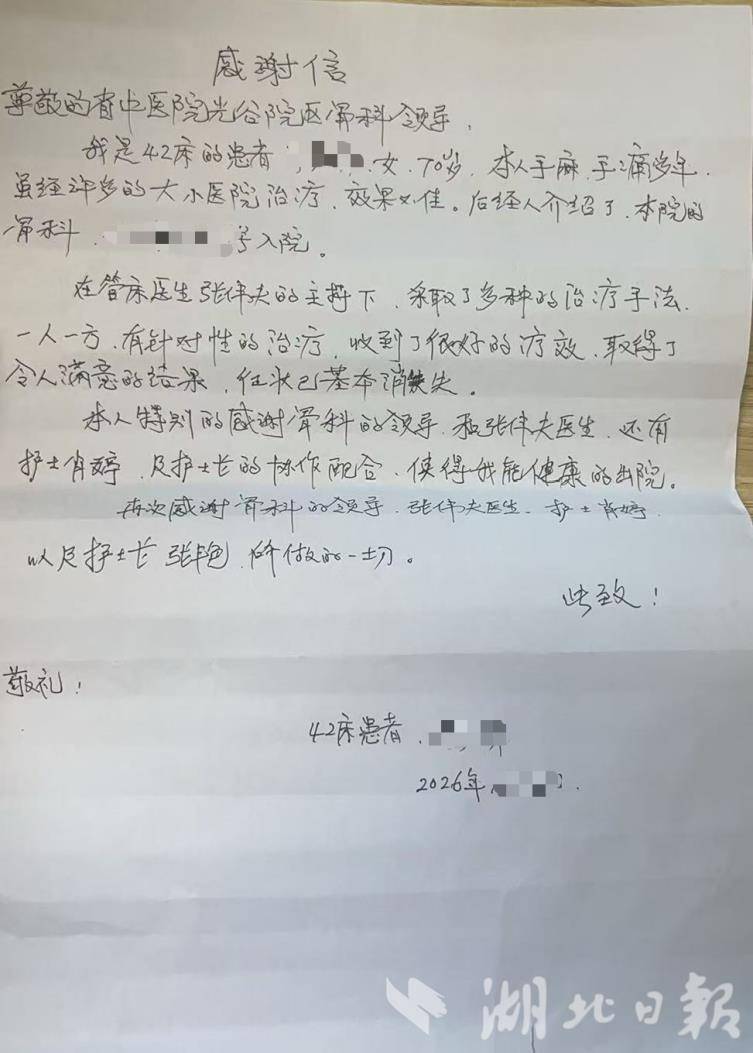 感谢信
尊敬的省中医院光谷院区骨科领导,
我是42床的患者, 女, 70岁, 本人手麻、手痛多年,
虽经许多的大小医院治疗, 效果不佳。后经人介绍了, 本院的
骨科, 号入院。
在管床医生张伟夫的主持下, 采取了多种的治疗手法,
一人一方, 有针对性的治疗, 收到了很好的疗效, 取得了
令人满意的结果, 症状已基本消失。
本人特别的感谢骨科的领导, 和张伟夫医生, 还有
护士肖婷, 及护士长的协作配合, 使得我能健康的出院。
再次感谢骨科的领导, 张伟夫医生, 护士肖婷,
以及护士长张, 所做的一切。
此致!
敬礼!
42床患者,
2026年
湖北日報